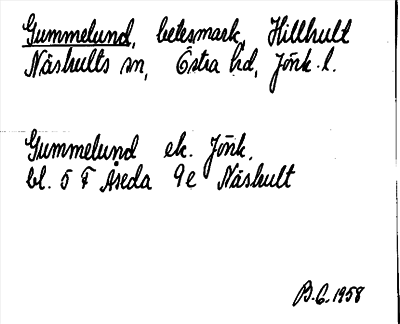 Gummelund, betesmark, Hillhult
Näshults sn, Östra hd, Jönk. l.
Gummelund ek. Jönk.
bl. 5 F Åseda 9e Näshult
B.G. 1958